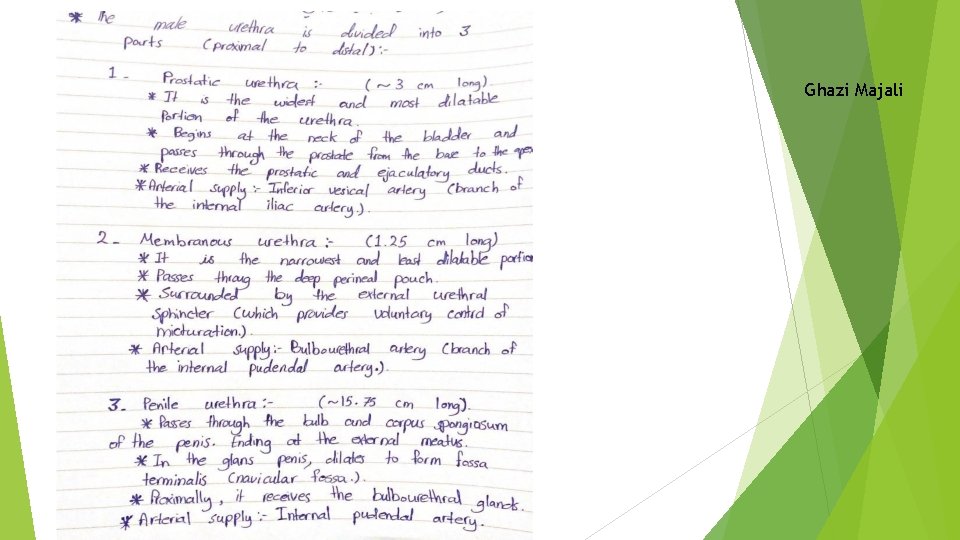 * The male urethra is divided into 3
parts (proximal to distal) :-
1 - Prostatic urethra :- (~3 cm long).
* It is the widest and most dilatable
Portion of the urethra.
* Begins at the neck of the bladder and
passes through the prostate from the base to the apex
* Receives the prostatic and ejaculatory ducts.
* Arterial supply :- Inferior vesical artery (branch of
the internal iliac artery.).
2 - Membranous urethra :- (1.25 cm long)
* It is the narrowest and least dilatable portion
* Passes throug the deep perineal pouch.
* Surrounded by the external urethral
Sphincter (which provides voluntary control of
micturation.).
* Arterial supply :- Bulbourethral artery (branch of
the internal pudendal artery.).
3. Penile urethra :- (~15.75 cm long).
* Passes through the bulb and corpus spongiosum
of the penis. Ending at the external meatus.
* In the glans penis, dilates to form fossa
terminalis (navicular fossa.).
* Proximally, it receives the bulbourethral glands.
* Arterial supply :- Internal pudendal artery.
Ghazi Majali